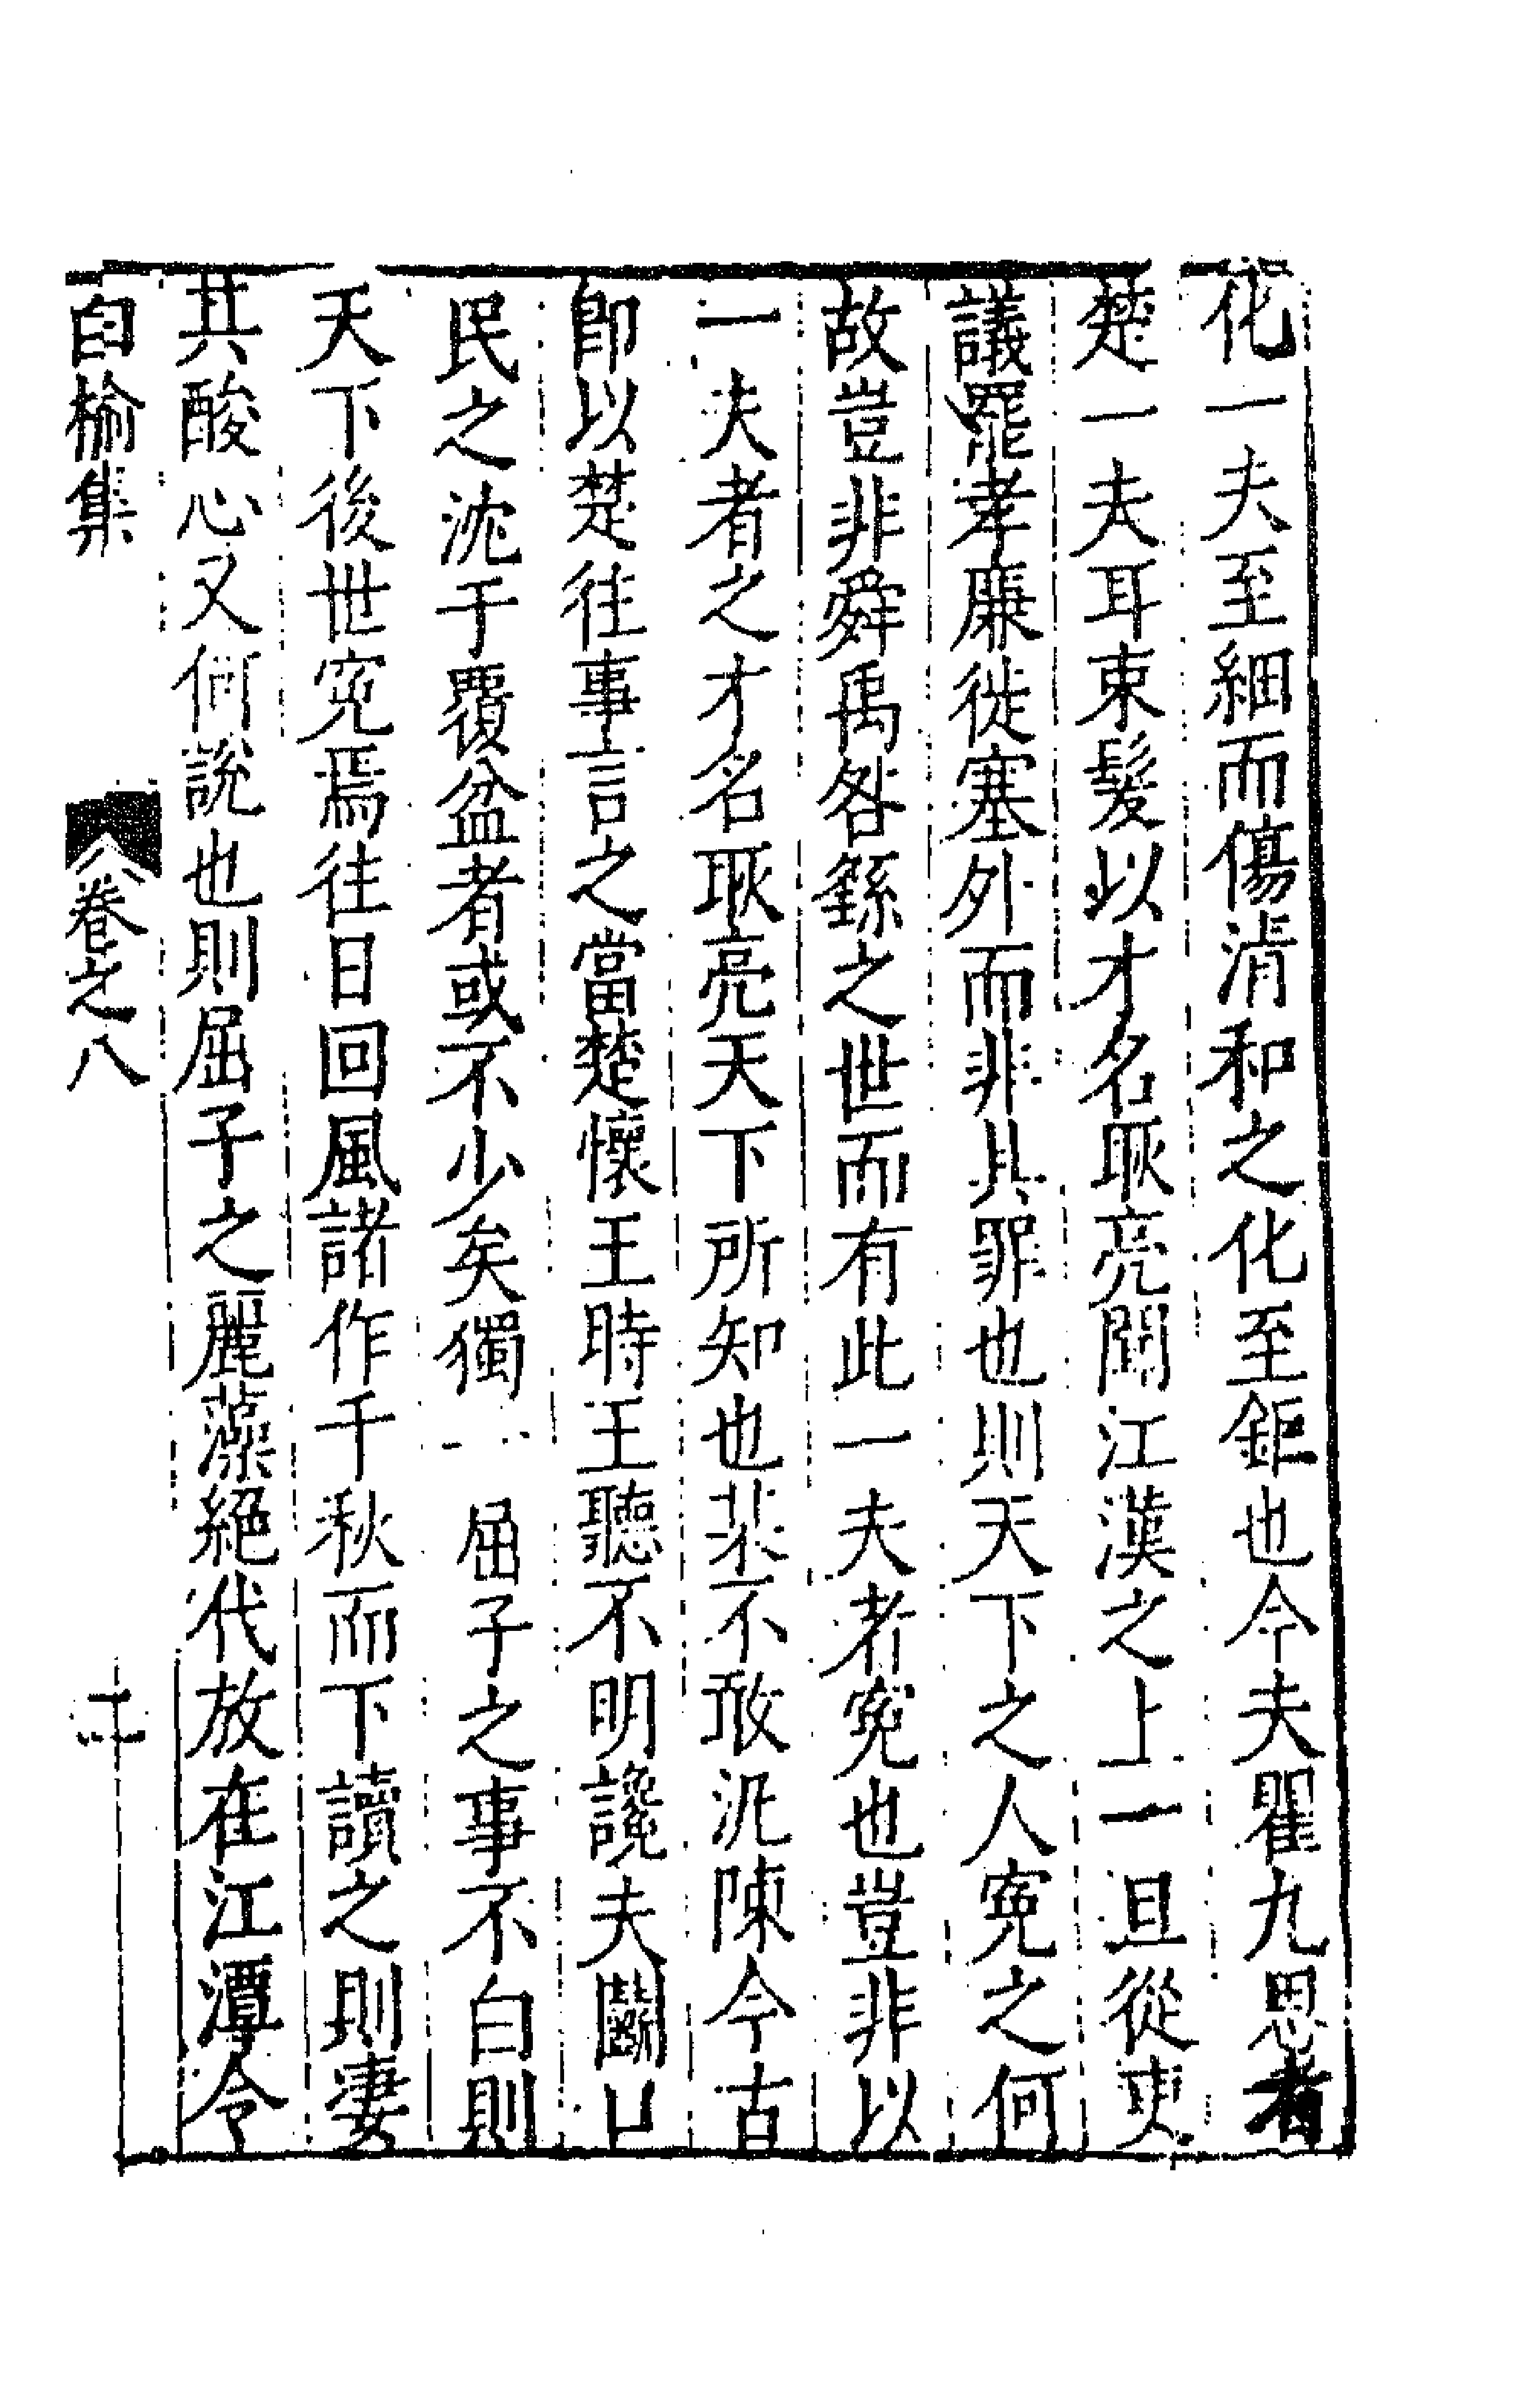 化一夫至細而傷清和之化至鉅也今夫瞿九思者
楚一夫耳束髮以才名耿亮聞江漢之上一旦從吏
議罷孝廉徙塞外而非其罪也則天下之人寃之何
故豈非舜禹咎繇之世而有此一夫者寃也豈非以
一夫者之才名耿亮天下所知也某不敢泥陳今古
即以楚往事言之當楚懷王時王聽不明讒夫鬬口
民之沈于覆盆者或不少矣獨一屈子之事不白則
天下後世寃焉往日回風諸作千秋而下讀之則凄
其酸心又何說也則屈子之麗藻絕代放在江潭令
白榆集 卷之八 二十